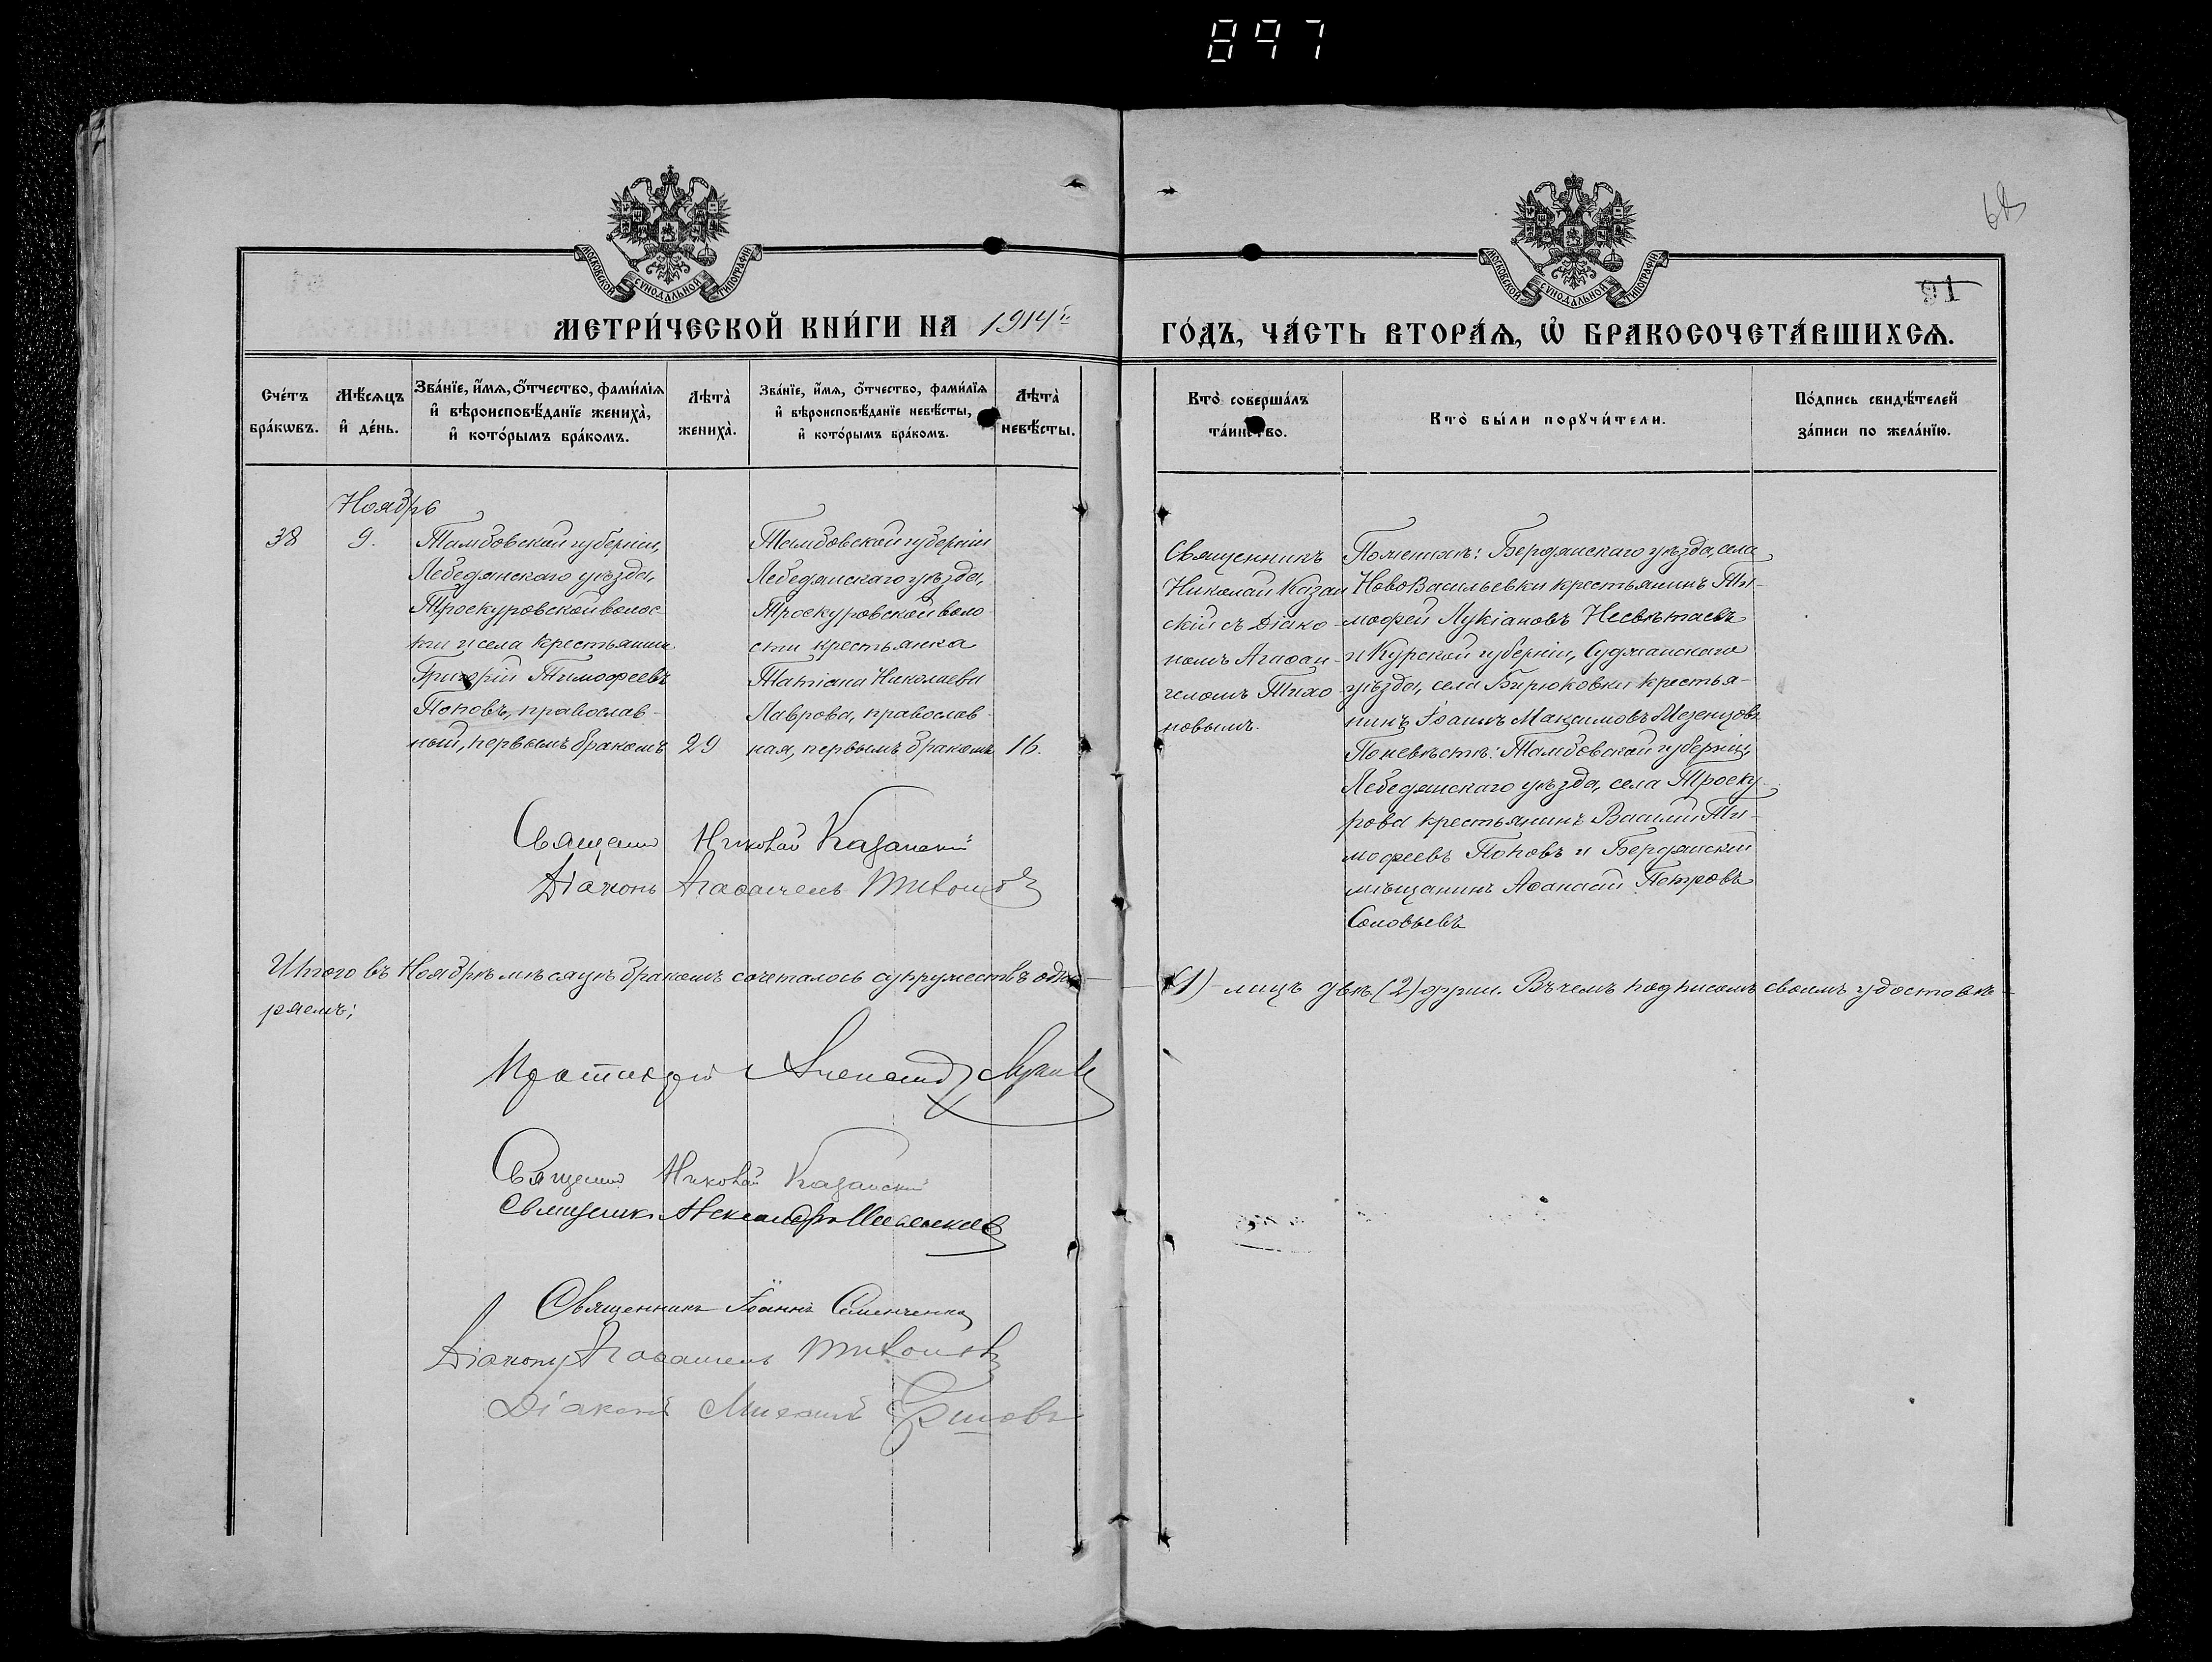 897
68
91
МОСКОВСКОЙ СѴНОДАЛЬНОЙ ТИПОГРАФІИ
МОСКОВСКОЙ СѴНОДАЛЬНОЙ ТИПОГРАФІИ
МЕТРИ́ЧЕСКОЙ КНИ́ГИ НА 1914й
ГО́ДЪ, ЧА́СТЬ ВТОРА́Ѧ, Ѽ БРАКОСОЧЕТА́ВШИХСѦ.
Сче́тъ
бра́кѡвъ.
Мѣ́сѧцъ
и҆ де́нь.
Зва́нїе, и҆́мѧ, ѻ҆́тчество, фами́лїѧ
и҆ вѣроисповѣ́данїе жениха̀,
и҆ кото́рымъ бра́комъ.
Лѣта̀
жениха̀.
Зва́нїе, и҆́мѧ, ѻ҆́тчество, фами́лїѧ
и҆ вѣроисповѣ́данїе невѣ́сты,
и҆ кото́рымъ бра́комъ.
Лѣта̀
невѣ́сты.
Кто̀ соверша́лъ
та́инство.
Кто̀ бы́ли порꙋчи́тели.
По́дпись свидѣ́телей
за́писи по жела́нїю.
Ноябрь
38
9.
Тамбовской губерніи,
Лебедянскаго уѣзда,
Троекуровской волос
ти и села крестьянинъ
Григорій Тимофеевъ
Поповъ, православ-
ный, первымъ бракомъ
29
Тамбовской губерніи
Лебедянскаго уѣзда,
Троекуровской воло-
сти крестьянка
Татіана Николаева
Лаврова, православ-
ная, первымъ бракомъ
16.
Священникъ
Николай Казан
скій съ Діако-
номъ Агаѳан-
геломъ Тихо-
новымъ.
По женихѣ: Бердянскаго уѣзда, села
НовоВасильевки крестьянинъ Ти-
мофей Лукіановъ Несвѣтаевъ
и Курской губерніи, Суджанскаго
уѣзда, села Бирюковки крестья-
нинъ Іоаннъ Максимовъ Мезенцовъ
По невѣстѣ: Тамбовской губерніи,
Лебедянскаго уѣзда, села Троеку-
рова крестьянинъ Василій Ти-
мофеевъ Поповъ и Бердянскій
мѣщанинъ Аѳанасій Петровъ
Соловьевъ
Священ Николай Казанскій
Діаконъ Агаѳангелъ Тихоновъ
Итого въ Ноябрѣ мѣсяцѣ бракомъ сочеталось супружествъ одно
(1) - лицъ двѣ (2) души. Въ чемъ подписомъ своимъ удостовѣ-
ряемъ:
Протоіерей Александр
Священ Николай Казанскій
Священник Александръ
Священникъ Іоаннъ Семенченко
Діаконъ Агаѳангелъ Тихоновъ
Діаконъ Михаилъ